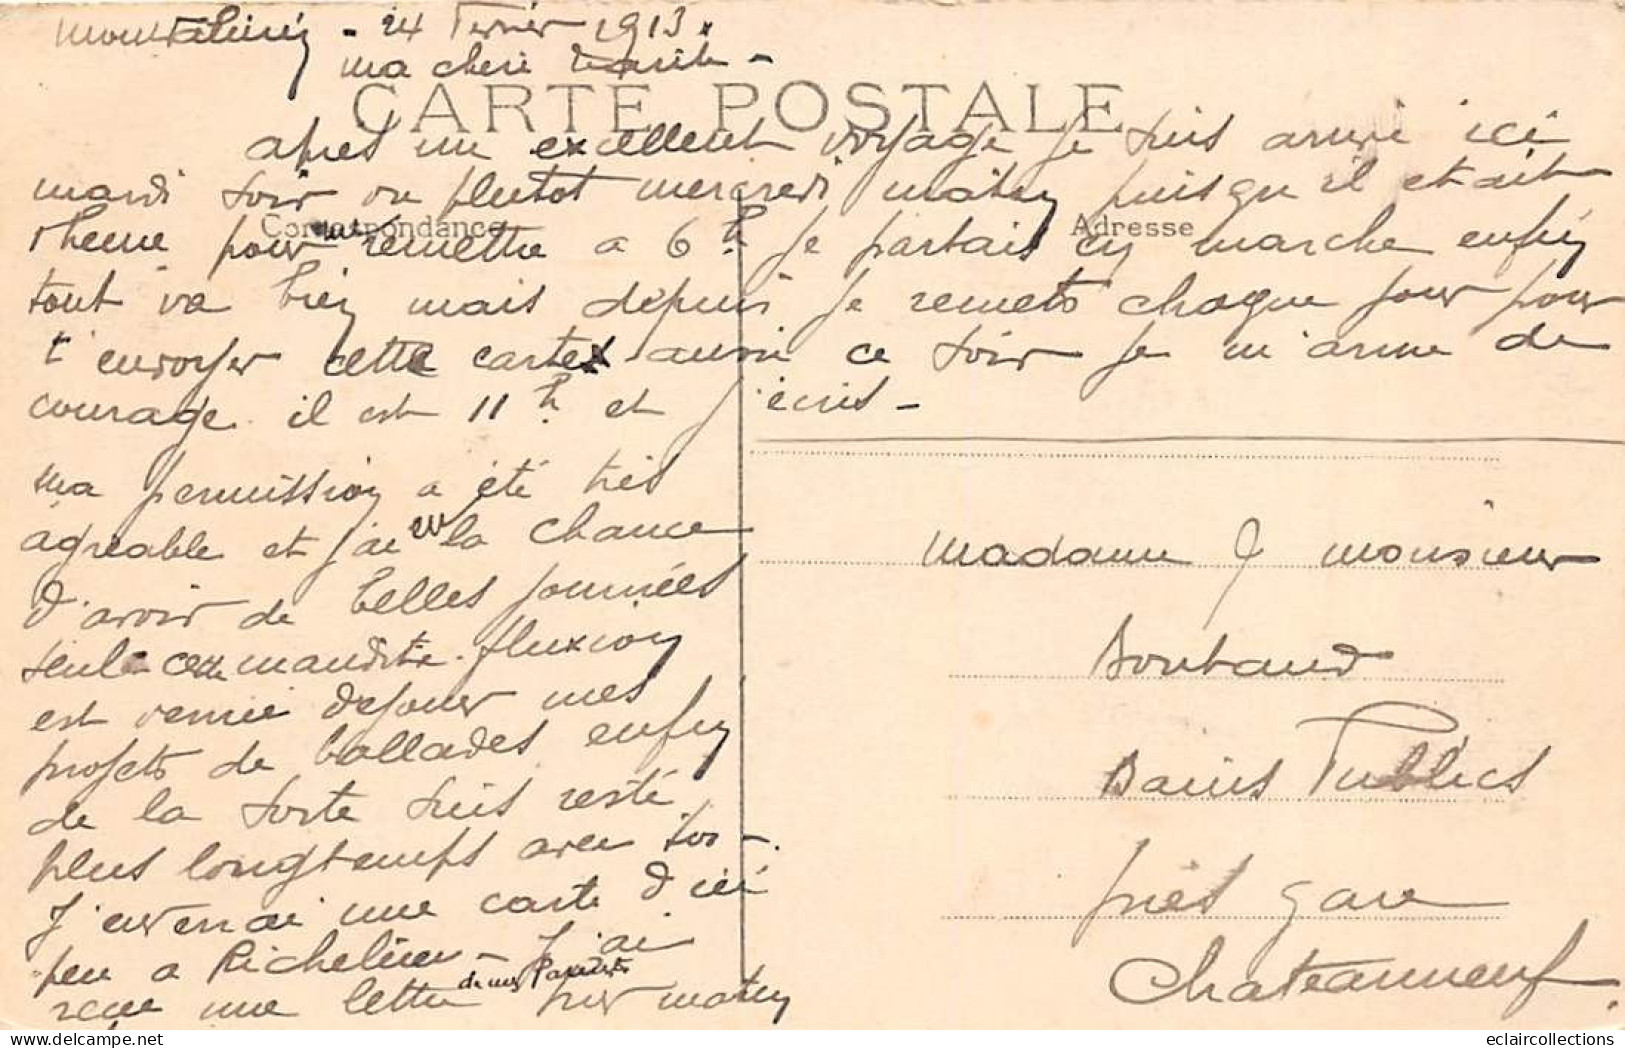 24 Fevrier 1913.
ma cheri
CARTE POSTALE
après un excellent voyage je suis arrivé ici
mardi soir ou plutot mercredi matin puisqu'il etait
1 heure pour remettre a 6h je partais en marche enfin
Correspondance
Adresse
tout va bien mais depuis je remets chaque jour pour
t'envoyer cette carte aussi ce soir je m'arme de
courage. il est 11h et j'écris -
ma permission a été très
agréable et j'ai eu la chance
d'avoir de belles journées
seule cette maudite fluxion
est venue dejouer mes
projets de ballades enfin
de la sorte suis resté
plus longtemps avec vos -
J'enverrai une carte d'ici
peu a Richelieu - J'ai
recu une lettre de mes Parents hier matin
Madame & monsieur
Bains Publics
près gare
Chateauneuf.
eclaircollections